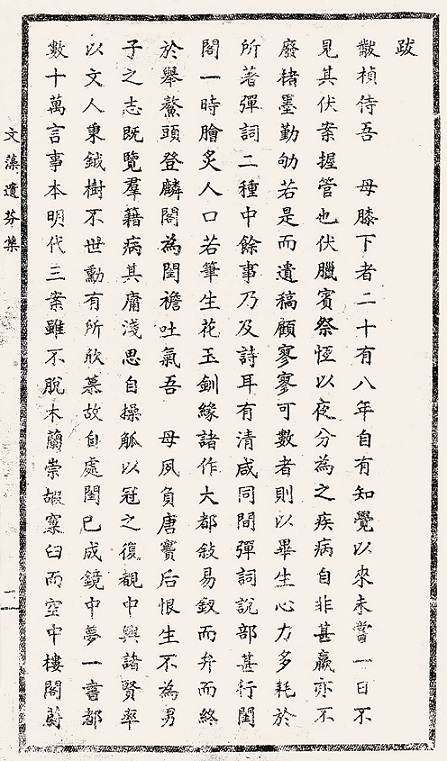 跋
黻楨侍吾　母膝下者二十有八年自有知覺以來未嘗一日不
見其伏案握管也伏臘賓祭恆以夜分為之疾病自非甚羸亦不
廢楮墨勤劬若是而遺稿顧寥寥可數者則以畢生心力多耗於
所著彈詞二種中餘事乃及詩耳有清咸同間彈詞說部甚行閨
閤一時膾炙人口若筆生花玉釧緣諸作大都敍易釵而弁而終
於舉鰲頭登麟閣為閨襜吐氣吾　母夙負唐竇后恨生不為男
子之志既覽羣籍病其庸淺思自操觚以冠之復觀中興諸賢率
以文人秉鉞樹不世勳有所欣慕故自處閨已成鏡中夢一書都
數十萬言事本明代三案雖不脫木蘭崇嘏窠臼而空中樓閣蔚
文藻遺芬集
二